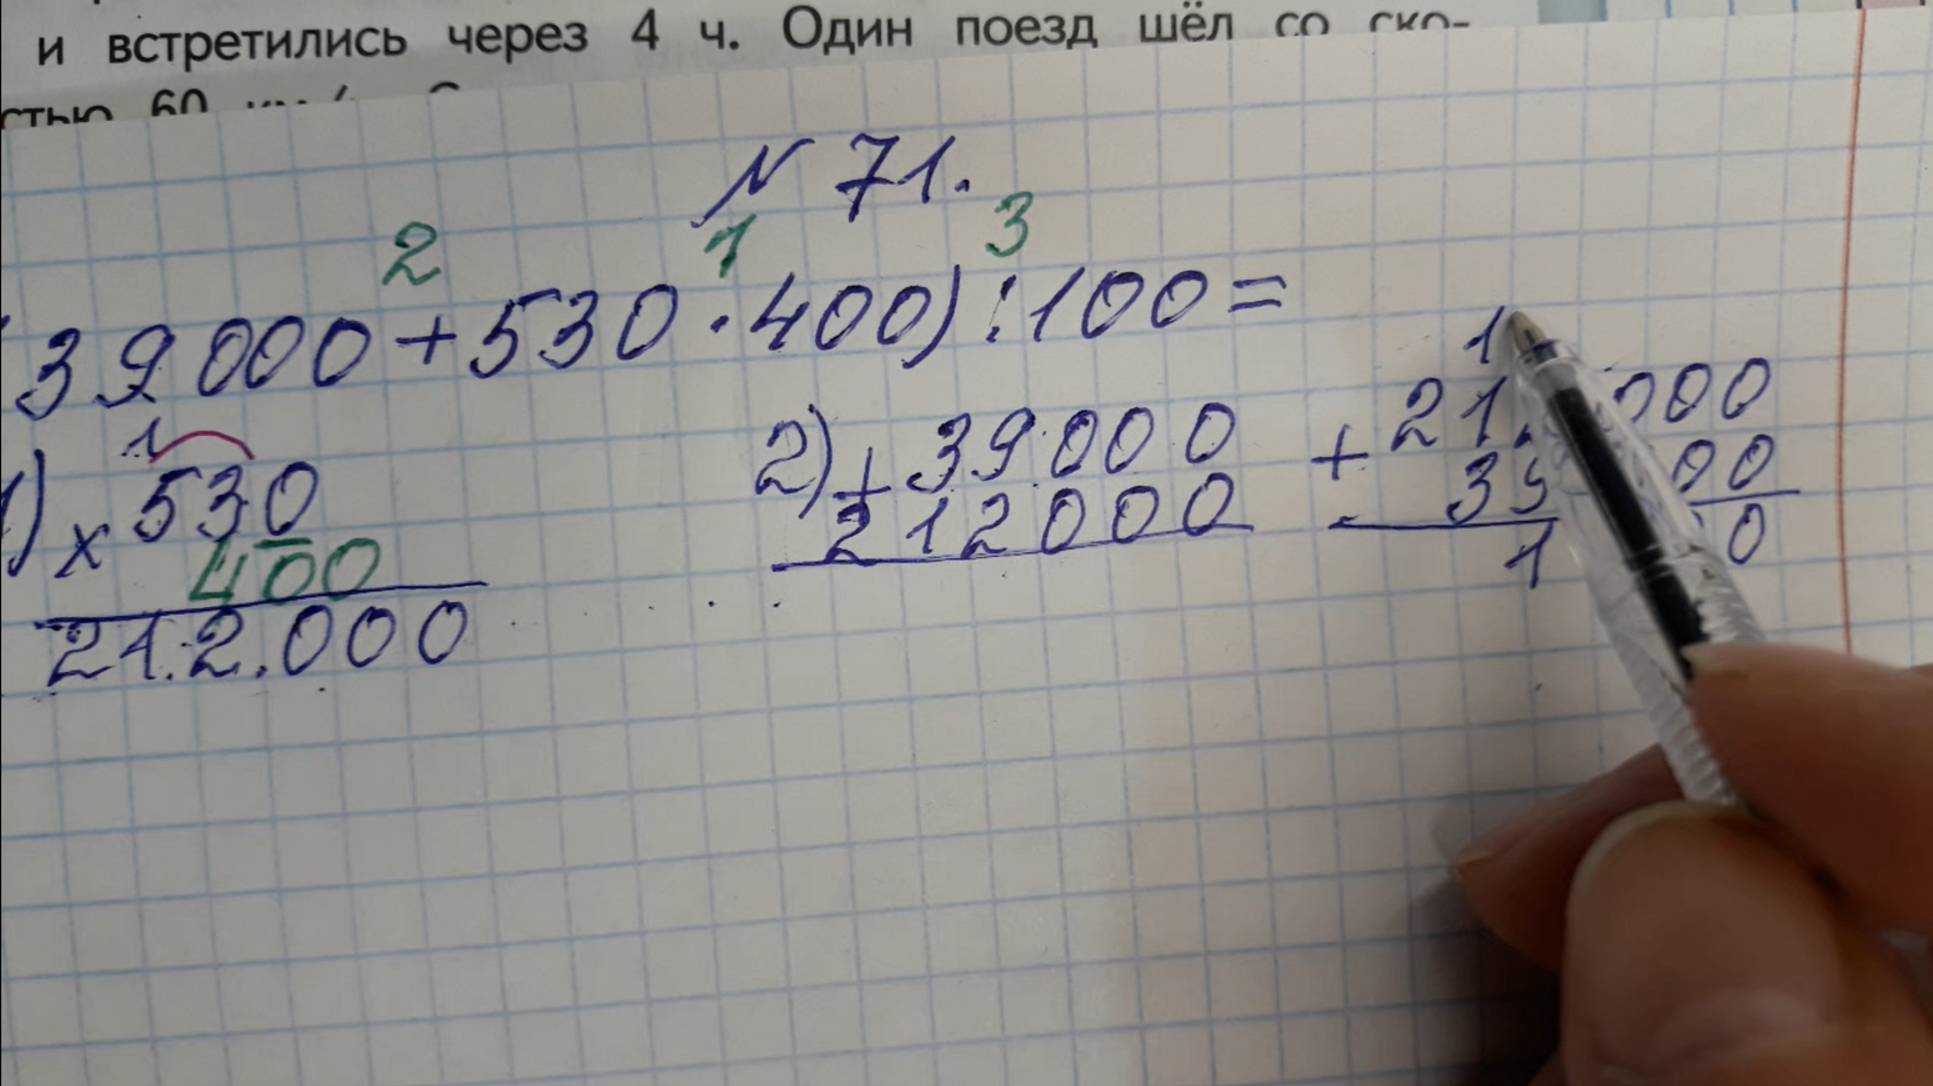 и встретились через 4 ч. Один поезд шёл со ско-
стью 60
N 71.
2 1 3
39000+530·400):100=
1)
1
×530
400
212.000
2)+39000
212000
1
+21 000
39 00
1 0